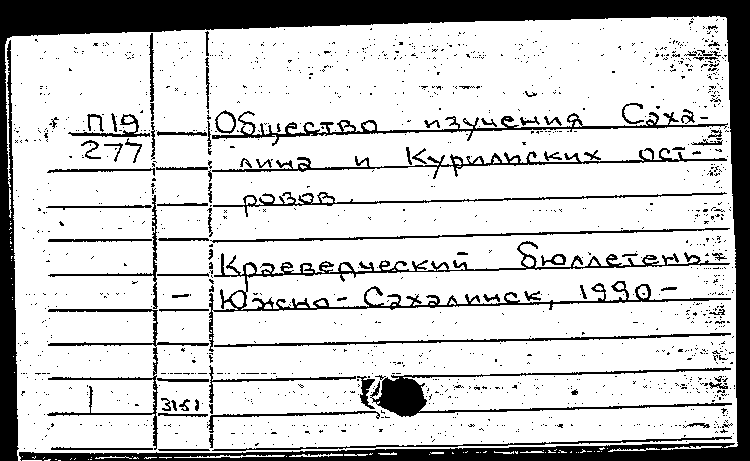 П19 Общество изучения Саха-
277 лина и Курильских ост-
ровов.
Краеведческий бюллетень.-
– Южно-Сахалинск, 1990-
1 3151